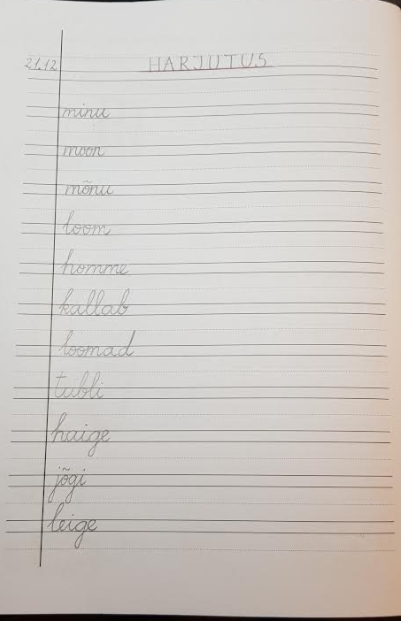 21.12 HARJUTUS
minu
moon
mõnu
loom
homme
kallab
loomad
tubli
haige
jõgi
leige